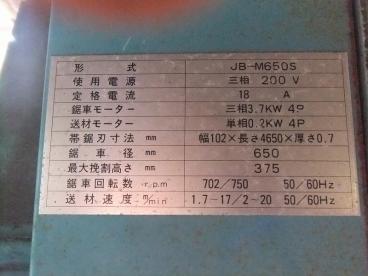 形式 JB-M650S
使用電源 三相 200 V
定格電流 18 A
鋸車モーター 三相3.7KW 4P
送材モーター 単相0.2KW 4P
帯鋸刃寸法 mm 幅102×長さ4650×厚さ0.7
鋸車径 mm 650
最大挽割高さ mm 375
鋸車回転数 r.p.m 702/750 50/60Hz
送材速度 m/min 1.7-17/2-20 50/60Hz